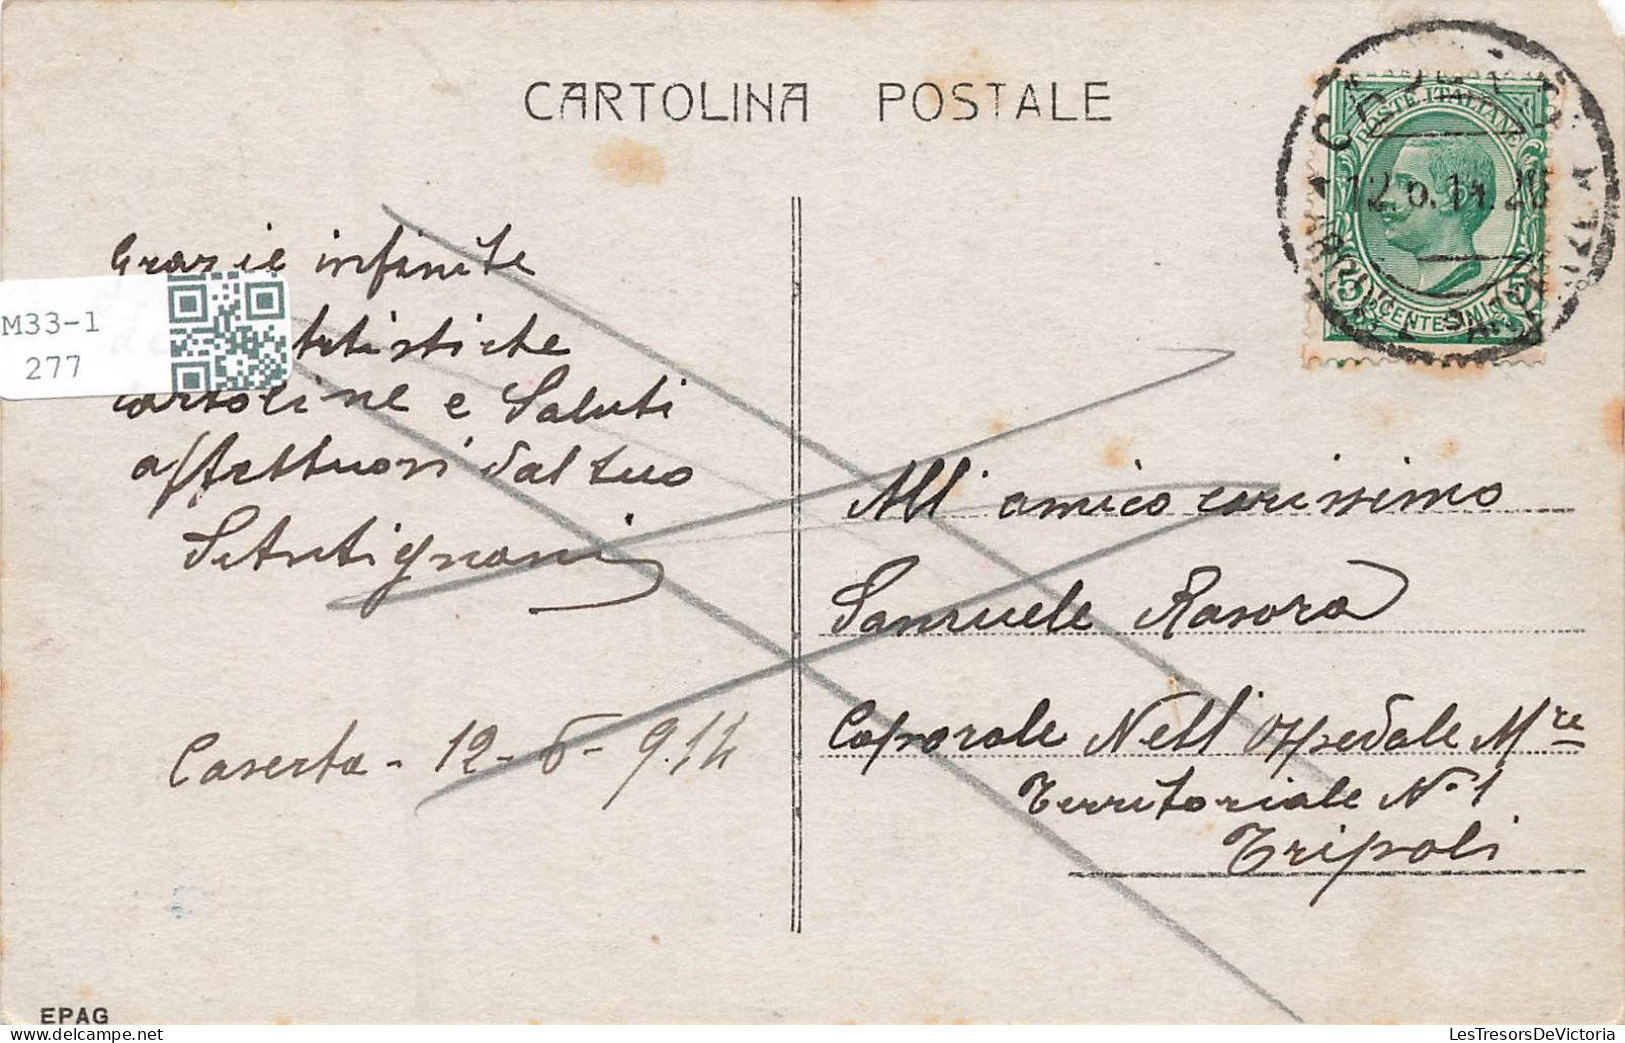 CARTOLINA POSTALE
POSTE ITALIANE
12.6.14.
CENTESIMI
5 5
Grazie infinite
M33-1
277
artistiche
cartoline e Saluti
affettuosi dal tuo
All' amico carissimo
Samuele Rasora
Caporale Nell' Ospedale Mre
Territoriale No 1
Tripoli
Caserta - 12 - 6 - 914
EPAG
LesTresorsDeVictoria